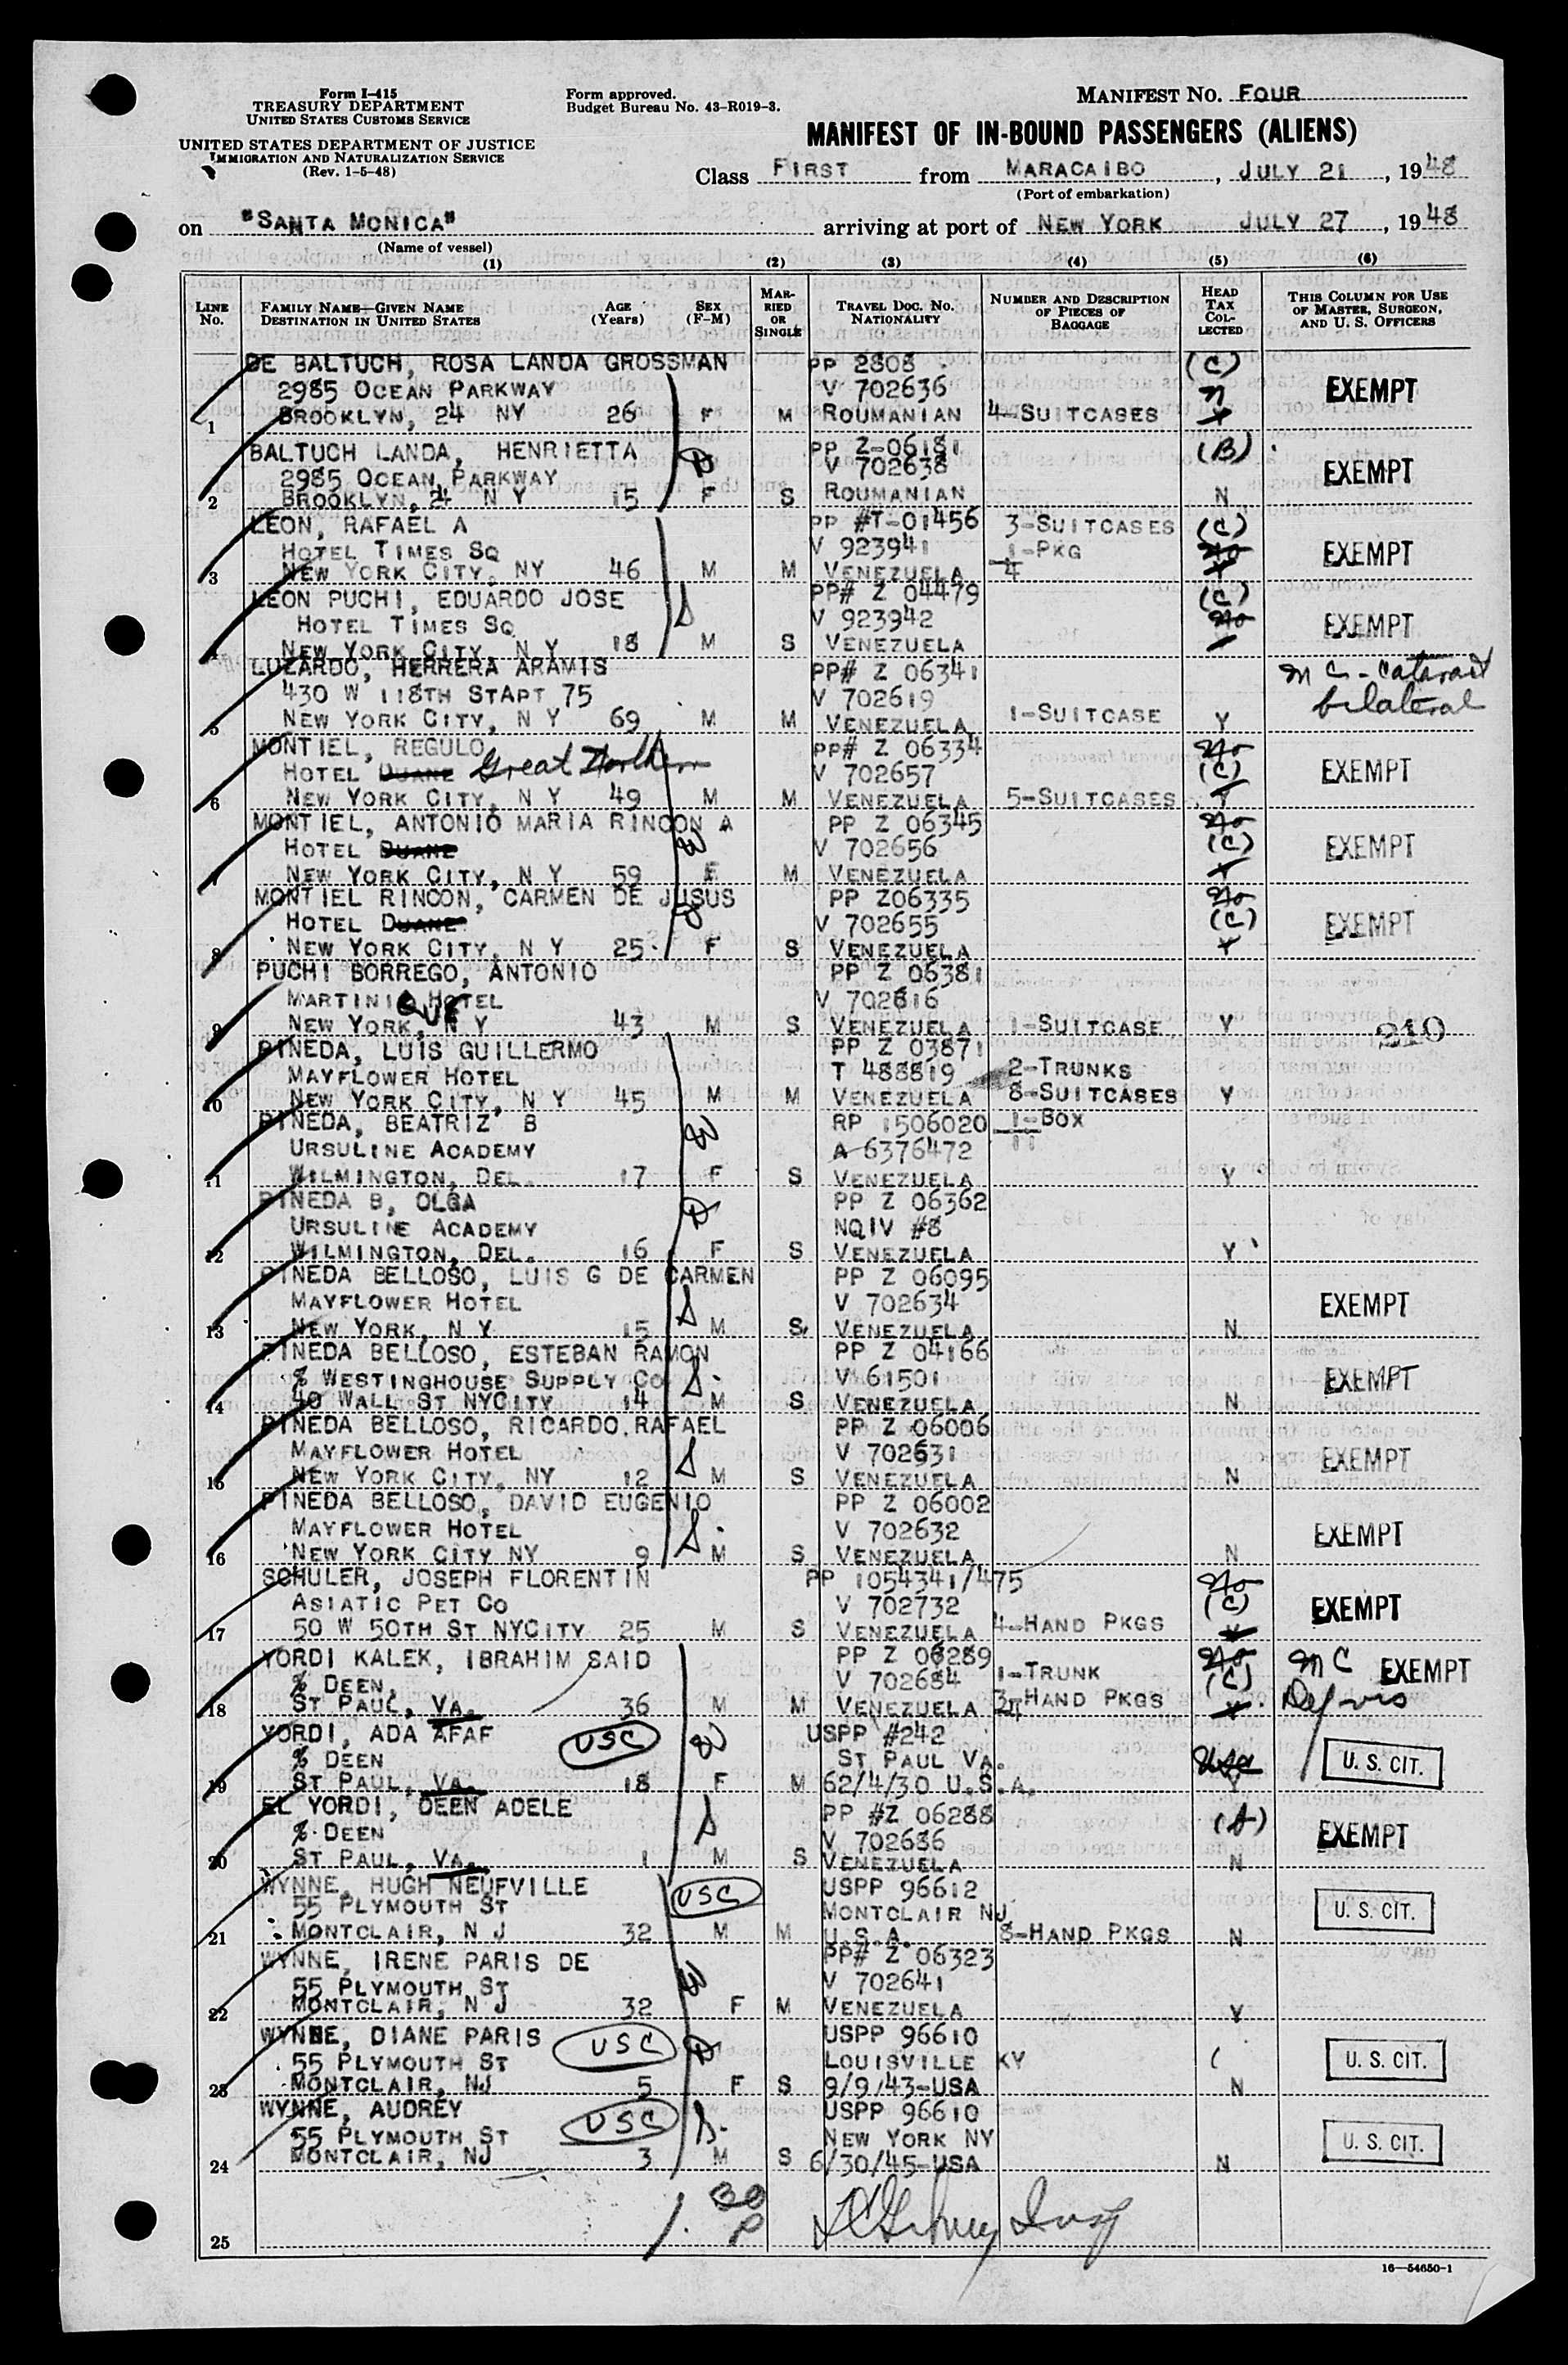 Form I-415
TREASURY DEPARTMENT
UNITED STATES CUSTOMS SERVICE
UNITED STATES DEPARTMENT OF JUSTICE
IMMIGRATION AND NATURALIZATION SERVICE
(Rev. 1-5-48)
Form approved.
Budget Bureau No. 43-R019-3.
MANIFEST NO. FOUR
MANIFEST OF IN-BOUND PASSENGERS (ALIENS)
Class FIRST from MARACAIBO, JULY 21, 1948
(Port of embarkation)
on "SANTA MONICA" arriving at port of NEW YORK JULY 27, 1948
(Name of vessel)
(1) (2) (3) (4) (5) (6)
LINE No. FAMILY NAME—GIVEN NAME DESTINATION IN UNITED STATES AGE (Years) SEX (F-M) MARRIED OR SINGLE TRAVEL DOC. NO. NATIONALITY NUMBER AND DESCRIPTION OF PIECES OF BAGGAGE HEAD TAX COLLECTED THIS COLUMN FOR USE OF MASTER, SURGEON, AND U. S. OFFICERS
DE BALTUCH, ROSA LANDA GROSSMAN PP 2808 (C)
2985 OCEAN PARKWAY V 702636 n EXEMPT
1 BROOKLYN, 24 NY 26 F M ROUMANIAN 4-SUITCASES Y
BALTUCH LANDA, HENRIETTA PP Z-06181 (B)
2985 OCEAN PARKWAY V 702638 EXEMPT
2 BROOKLYN, 24 N Y 15 F S ROUMANIAN N
LEON, RAFAEL A PP #T-01456 3-SUITCASES (C)
HOTEL TIMES SQ V 923941 1-PKG No EXEMPT
3 NEW YORK CITY, NY 46 M M VENEZUELA 4 Y
LEON PUCHI, EDUARDO JOSE PP# Z 04479 (C)
HOTEL TIMES SQ V 923942 No EXEMPT
4 NEW YORK CITY, N Y 18 M S VENEZUELA
LUZARDO, HERRERA ARAMIS PP# Z 06341 MC - cataract
430 W 118TH ST APT 75 V 702619 bilateral
5 NEW YORK CITY, N Y 69 M M VENEZUELA 1-SUITCASE Y
MONTIEL, REGULO PP# Z 06334 No
HOTEL DUANE Great Northern V 702657 (C) EXEMPT
6 NEW YORK CITY, N Y 49 M M VENEZUELA 5-SUITCASES Y
MONTIEL, ANTONIO MARIA RINCON A PP Z 06345 No
HOTEL DUANE V 702656 (C) EXEMPT
7 NEW YORK CITY, N Y 59 F M VENEZUELA Y
MONTIEL RINCON, CARMEN DE JUSUS PP Z06335 No
HOTEL DUANE V 702655 (C) EXEMPT
8 NEW YORK CITY, N Y 25 F S VENEZUELA Y
PUCHI BORREGO, ANTONIO PP Z 06381
MARTINIQUE HOTEL V 702616
9 NEW YORK, N Y 43 M S VENEZUELA 1-SUITCASE Y 210
PINEDA, LUIS GUILLERMO PP Z 03871
MAYFLOWER HOTEL T 488819 2-TRUNKS
10 NEW YORK CITY, N Y 45 M M VENEZUELA 8-SUITCASES Y
PINEDA, BEATRIZ B RP 1506020 1-BOX
URSULINE ACADEMY A 6376472 11
11 WILMINGTON, DEL. 17 F S VENEZUELA Y
PINEDA B, OLGA PP Z 06362
URSULINE ACADEMY NQIV #8
12 WILMINGTON, DEL. 16 F S VENEZUELA Y
PINEDA BELLOSO, LUIS G DE CARMEN PP Z 06095
MAYFLOWER HOTEL V 702634 EXEMPT
13 NEW YORK, N Y 15 M S VENEZUELA N
PINEDA BELLOSO, ESTEBAN RAMON PP Z 04166
% WESTINGHOUSE SUPPLY CO V 61501 EXEMPT
14 40 WALL ST NYCITY 14 M S VENEZUELA N
PINEDA BELLOSO, RICARDO RAFAEL PP Z 06006
MAYFLOWER HOTEL V 702631 EXEMPT
15 NEW YORK CITY, NY 12 M S VENEZUELA N
PINEDA BELLOSO, DAVID EUGENIO PP Z 06002
MAYFLOWER HOTEL V 702632 EXEMPT
16 NEW YORK CITY NY 9 M S VENEZUELA N
SCHULER, JOSEPH FLORENTIN PP 1054341/475 No
ASIATIC PET CO V 702732 (C) EXEMPT
17 50 W 50TH ST NYCITY 25 M S VENEZUELA 4-HAND PKGS Y
YORDI KALEK, IBRAHIM SAID PP Z 06289 No MC EXEMPT
% DEEN, V 702684 1-TRUNK (C)
18 ST PAUL, VA. 36 M M VENEZUELA 3-HAND PKGS Y Def vis
YORDI, ADA AFAF USC USPP #242
% DEEN ST PAUL VA. USC U. S. CIT.
19 ST PAUL, VA. 18 F M 62/4/30 U.S.A. Y
EL YORDI, DEEN ADELE PP #Z 06288 (A)
% DEEN V 702686 EXEMPT
20 ST PAUL, VA. 1 M S VENEZUELA N
WYNNE, HUGH NEUFVILLE USC USPP 96612
55 PLYMOUTH ST MONTCLAIR NJ U. S. CIT.
21 MONTCLAIR, N J 32 M M U.S.A. 8-HAND PKGS N
WYNNE, IRENE PARIS DE PP# Z 06323
55 PLYMOUTH ST V 702641
22 MONTCLAIR, N J 32 F M VENEZUELA Y
WYNNE, DIANE PARIS USC USPP 96610
55 PLYMOUTH ST LOUISVILLE KY ( U. S. CIT.
23 MONTCLAIR, NJ 5 F S 9/9/43-USA N
WYNNE, AUDREY USC USPP 96610
55 PLYMOUTH ST NEW YORK NY U. S. CIT.
24 MONTCLAIR, NJ 3 M S 6/30/45-USA N
30
P Insp
25
16—54650-1